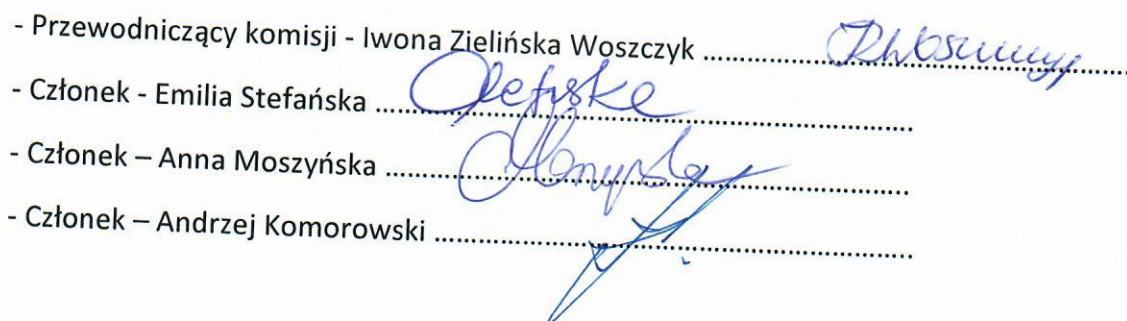 - Przewodniczący komisji - Iwona Zielińska Woszczyk ........................................................
- Członek - Emilia Stefańska ........................................................................
- Członek – Anna Moszyńska ......................................................................
- Członek – Andrzej Komorowski ................................................................